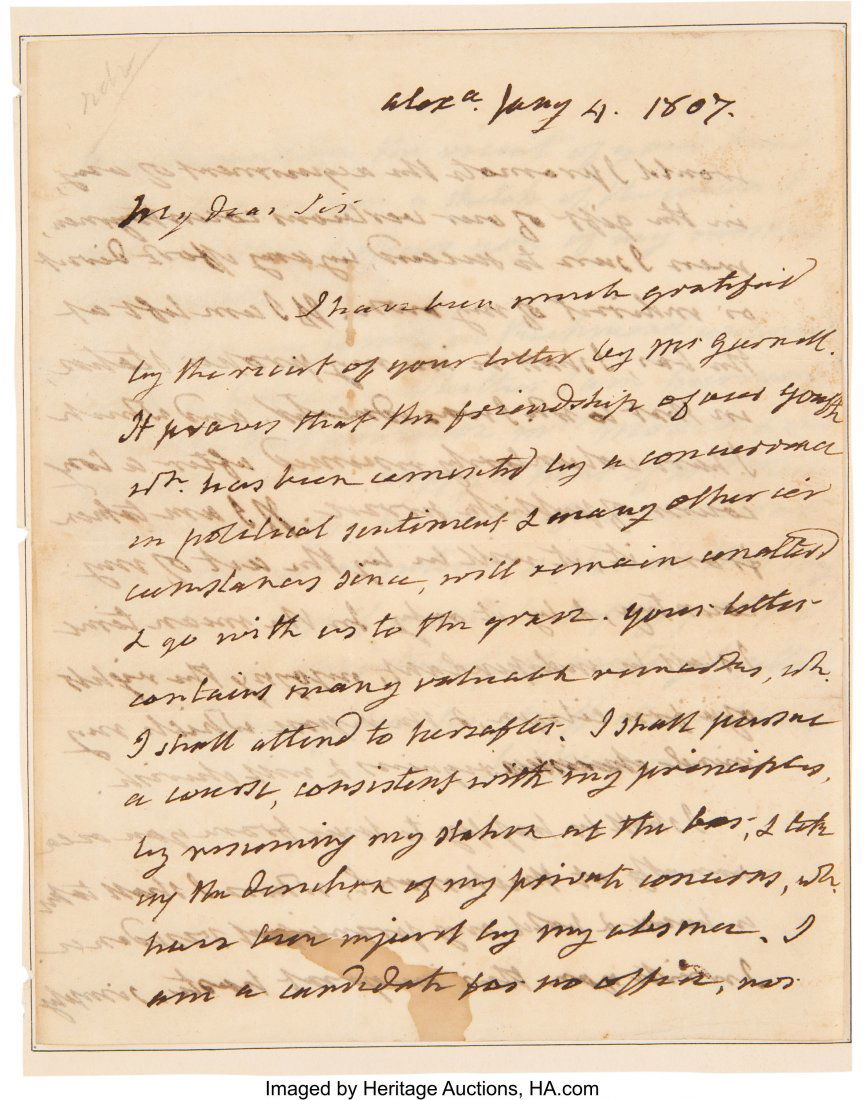 Alexa. Jany 4. 1807.
My dear Sir
I have been much gratified
by the receit of your letter by Mr Gurnell.
It proves that the friendship of our youth
wh. has been cemented by a concurrence
in political sentiment & many other cir
cumstances since, will remain unaltered
& go with us to the grave. your letter
contains many valuable remarks, wh.
I shall attend to hereafter. I shall pursue
a course, consistent with my principles,
by resuming my station at the bar, &
by the direction of my private concerns, wh.
have been injured by my absence. I
am a candidate for no office, nor
Imaged by Heritage Auctions, HA.com